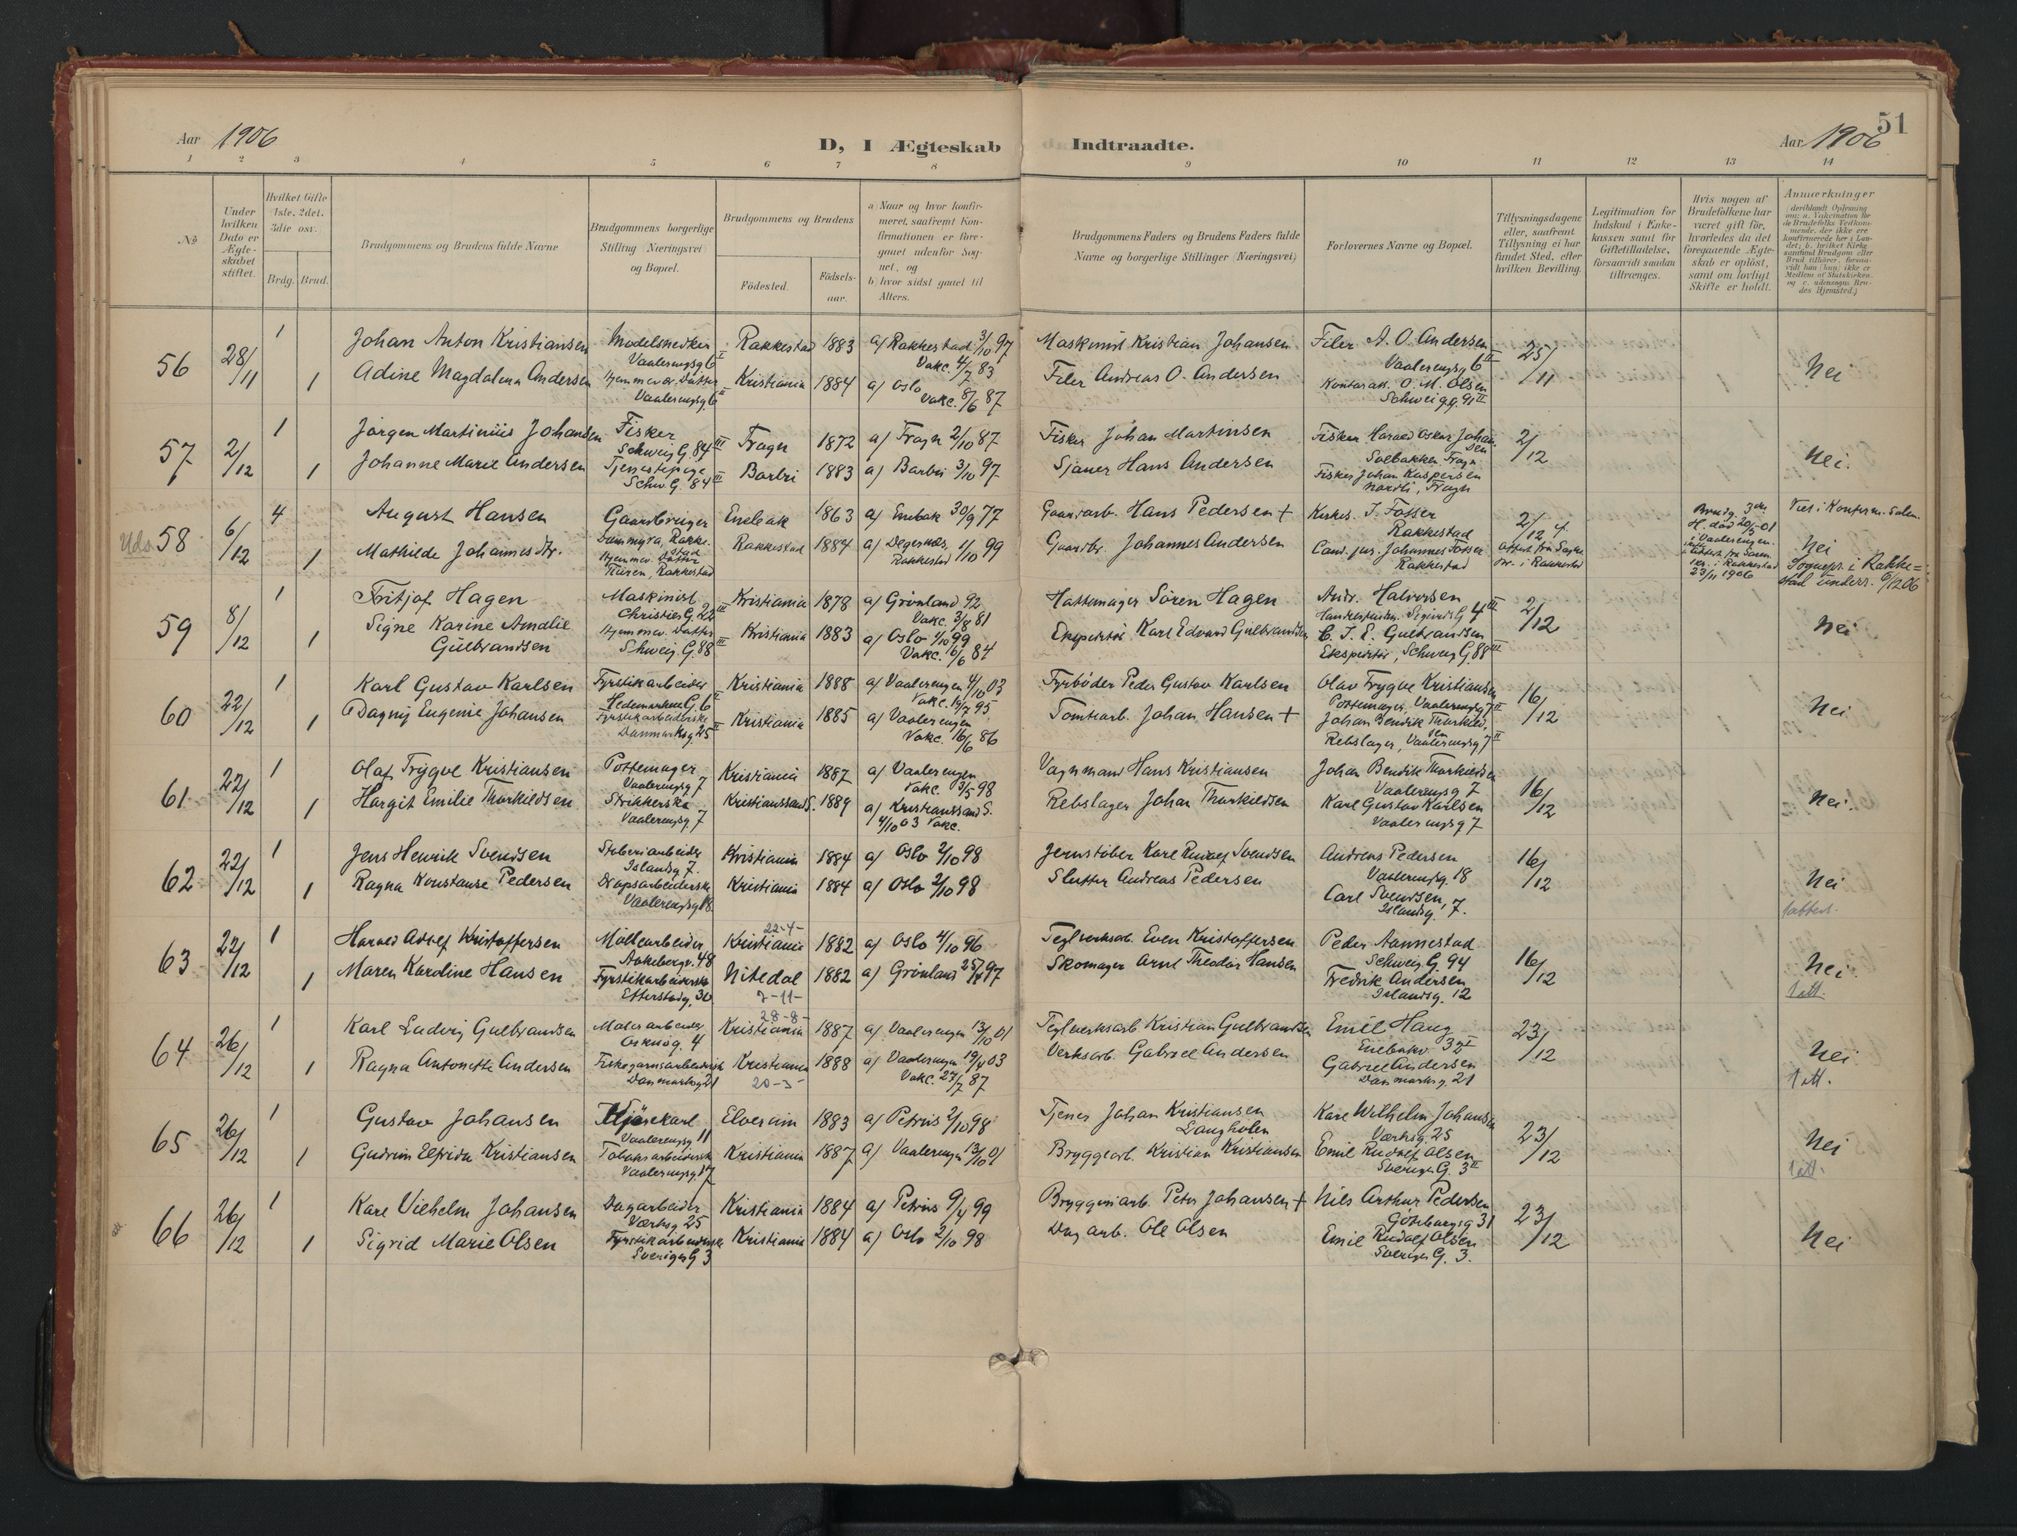 51
Aar 1906
D, I Ægteskab Indtraadte.
Aar 1906
1 2 3 4 5 6 7 8 9 10 11 12 13 14
No
Under hvilken Dato er Ægteskabet stiftet.
Hvilket Gifte 1ste, 2det, 3die osv.
Brdg. Brud.
Brudgommens og Brudens fulde Navne
Brudgommens borgerlige Stilling (Næringsvei) og Bopæl.
Brudgommens og Brudens
Fødested.
Fødselsaar.
a) Naar og hvor konfirmeret, saafremt Konfirmationen er foregaaet udenfor Sognet, og
b) hvor sidst gaaet til Alters.
Brudgommens Faders og Brudens Faders fulde Navne og borgerlige Stillinger (Næringsvei)
Forlovernes Navne og Bopæl.
Tillysningsdagene eller, saafremt Tillysning ei har fundet Sted, efter hvilken Bevilling.
Legitimation for Indskud i Enkekassen samt for Giftetilladelse, forsaavidt saadan tiltrænges.
Hvis nogen af Brudefolkene har været gift før, hvorledes da det foregaaende Ægteskab er opløst, samt om lovligt Skifte er holdt.
Anmærkninger
56 28/11 1 Johan Anton Kristiansen Modelsnedker Vaalerengsg 6 II Rakkestad 1883 a) Rakkestad 3/10 97 Vakc. 4/7 83 Maskinist Kristian Johansen Filer A. O. Andersen Vaalerengsg 6 II 25/11 Nei
1 Adine Magdalena Andersen Hjemmev. Datter Vaalerengsg 6 II Kristiania 1884 a) Oslo Vakc. 8/6 87 Filer Andreas O. Andersen Kontorass. O. M. Olsen Schweig.g. 91 II
57 2/12 1 Jørgen Martinius Johansen Fisker Schweig G. 84 III Frogn 1872 a) Frogn 2/10 87 Fisker Johan Martinsen Fisker Harald Oskar Johansen Solbakken Frogn 2/12 Nei.
1 Johanne Marie Andersen Tjenestepige Schw. G. 84 III Barbri 1883 a) Barbri 3/10 97 Sjauer Hans Andersen Fisker Johan Kaspersen Nordli, Frogn
58 6/12 4 August Hansen Gaardbruger Dammyra, Rakkestad Enebak 1863 a) Enebak 30/9 77 Gaardarb. Hans Pedersen + Kirkes. J. Fosser Rakkestad 2/12 Nei
1 Mathilde Johannesdtr. Hjemmev. Datter Rakkestad Rakkestad 1884 a) Degernes, Rakkestad 1/10 99 Gaardbr. Johannes Andersen Cand. jur. Johannes Fosser Rakkestad
Brudg. 3die H. død 20/5 01 i Vaalerengen. 23/11 1906
Viet i Konfirm. Salen. Sognepr. i Rakkestad underr. 6/12 06
59 8/12 1 Fritjof Hagen Maskinist Christies G. 22 III Kristiania 1878 a) Grønland 92 Vakc. 3/8 81 Hattemager Søren Hagen Andr. Halvorsen Sigurds G 4 III 2/12 Nei
1 Signe Karine Amalie Gulbrandsen Hjemmev. Datter Schweig. G. 88 III Kristiania 1883 a) Oslo 1/10 99 Vakc. 6/6 84 Ekspeditør Karl Edvard Gulbrandsen C. J. E. Gulbrandsen Ekspeditør, Schweig G 88 III
60 22/12 1 Karl Gustav Karlsen Fyrstikarbeider Hedemarkens G. 6 II Kristiania 1888 a) Vaalerengen 4/10 03 Vakc. 14/7 95 Fyrbøder Peder Gustav Karlsen Olav Trygve Kristiansen Pottemager, Vaalerengsg 7 II 16/12 Nei
1 Dagny Eugenie Johansen Fyrstikarbeiderske Danmarksg. 25 II Kristiania 1885 a) Vaalerengen Vakc. 16/6 86 Tomtearb. Johan Hansen + Johan Bendik Thorkildsen Rebslager, Vaalerengsg 7 II
61 22/12 1 Olaf Trygve Kristiansen Pottemager Vaalerengsg 7 Kristiania 1887 a) Vaalerengen Vakc. 13/5 98 Vognmand Hans Kristiansen Johan Bendik Thorkildsen Vaalerengsg 7 16/12 Nei.
1 Hargit Emilie Thorkildsen Strikkerske Vaalerengsg. 7 Kristianssand S. 1889 a) Kristianssand S. 4/10 03 Vakc. Rebslager Johan Thorkildsen Karl Gustav Karlsen Vaalerengsg 7
62 22/12 1 Jens Henrik Svendsen Støberiarbeider Islandsg 7. Kristiania 1884 a) Oslo 2/10 98 Jernstøber Karl Rudolf Svendsen Andreas Pedersen Vaalerengsg. 18 16/12 Nei
1 Ragna Konstanse Pedersen Kapsarbeiderske Vaalerengsg 18 Kristiania 1884 a) Oslo 2/10 98 Slutter Andreas Pedersen Carl Svendsen, Islandsg. 7. 1 attest.
63 22/12 1 Harald Adolf Kristoffersen Møllearbeider Aakebergv. 48 22-4- Kristiania 1882 a) Oslo 4/10 96 Teglverksarb. Even Kristoffersen Peder Aannestad Schweig G. 94 16/12 Nei
1 Maren Karoline Hansen Fyrstikarbeiderske Etterstadg. 30 Nitedal 7-11- 1882 a) Grønland 25/4 97 Skomager Arnt Theodor Hansen Fredrik Andersen Islandsg. 12 1 att.
64 26/12 1 Karl Ludvig Gulbrandsen Malerarbeider Opsøg. 4 28-8- Kristiania 1887 a) Vaalerengen 13/10 01 Teglverksarb. Kristian Gulbrandsen Emil Haug Enebakv 32 I 23/12 Nei
1 Ragna Antonette Andersen Danmarksg 21 Kristiania 20-3- 1888 a) Vaalerengen 19/4 03 Vakc. 27/7 87 Verksarb. Gabriel Andersen Gabriel Andersen Danmarksg. 21 1 att.
65 26/12 1 Gustav Johansen Kjørekarl Vaalerengsg 11 Elverum 1883 a) Petrus 2/10 98 Tjener Johan Kristiansen Langholen Karl Wilhelm Johansen Værksg 25 23/12 Nei
1 Gudrun Elfrida Kristiansen Tobaksarbeiderske Vaalerengsg. 17 Kristiania 1887 a) Vaalerengen 13/10 01 Bryggearb. Kristian Kristiansen Emil Rudolf Olsen Sveriges G. 3 II 1 att.
66 26/12 1 Karl Vilhelm Johansen Dagarbeider Værksg 25 Kristiania 1884 a) Petrus 9/4 99 Bryggeriarb. Peter Johansen + Nils Arthur Pedersen Gøteborgsg 31 23/12 Nei
1 Sigrid Marie Olsen Fyrstikarbeiderske Sveriges G 3 Kristiania 1884 a) Oslo 2/10 98 Dagarb. Ole Olsen Emil Rudolf Olsen Sveriges G. 3.